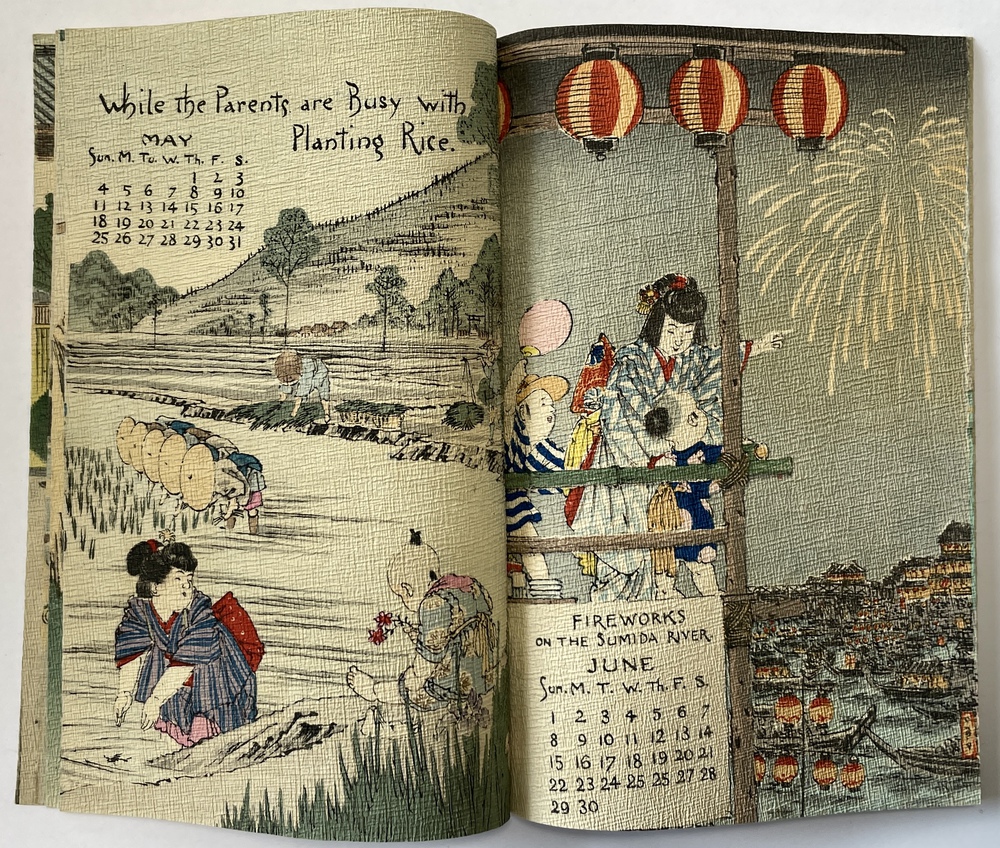 While the Parents are Busy with
Planting Rice.
MAY
Sun. M. Tu. W. Th. F. S.
1 2 3
4 5 6 7 8 9 10
11 12 13 14 15 16 17
18 19 20 21 22 23 24
25 26 27 28 29 30 31
FIREWORKS
ON THE SUMIDA RIVER.
JUNE
Sun. M. T. W. Th. F. S.
1 2 3 4 5 6 7
8 9 10 11 12 13 14
15 16 17 18 19 20 21
22 23 24 25 25 27 28
29 30